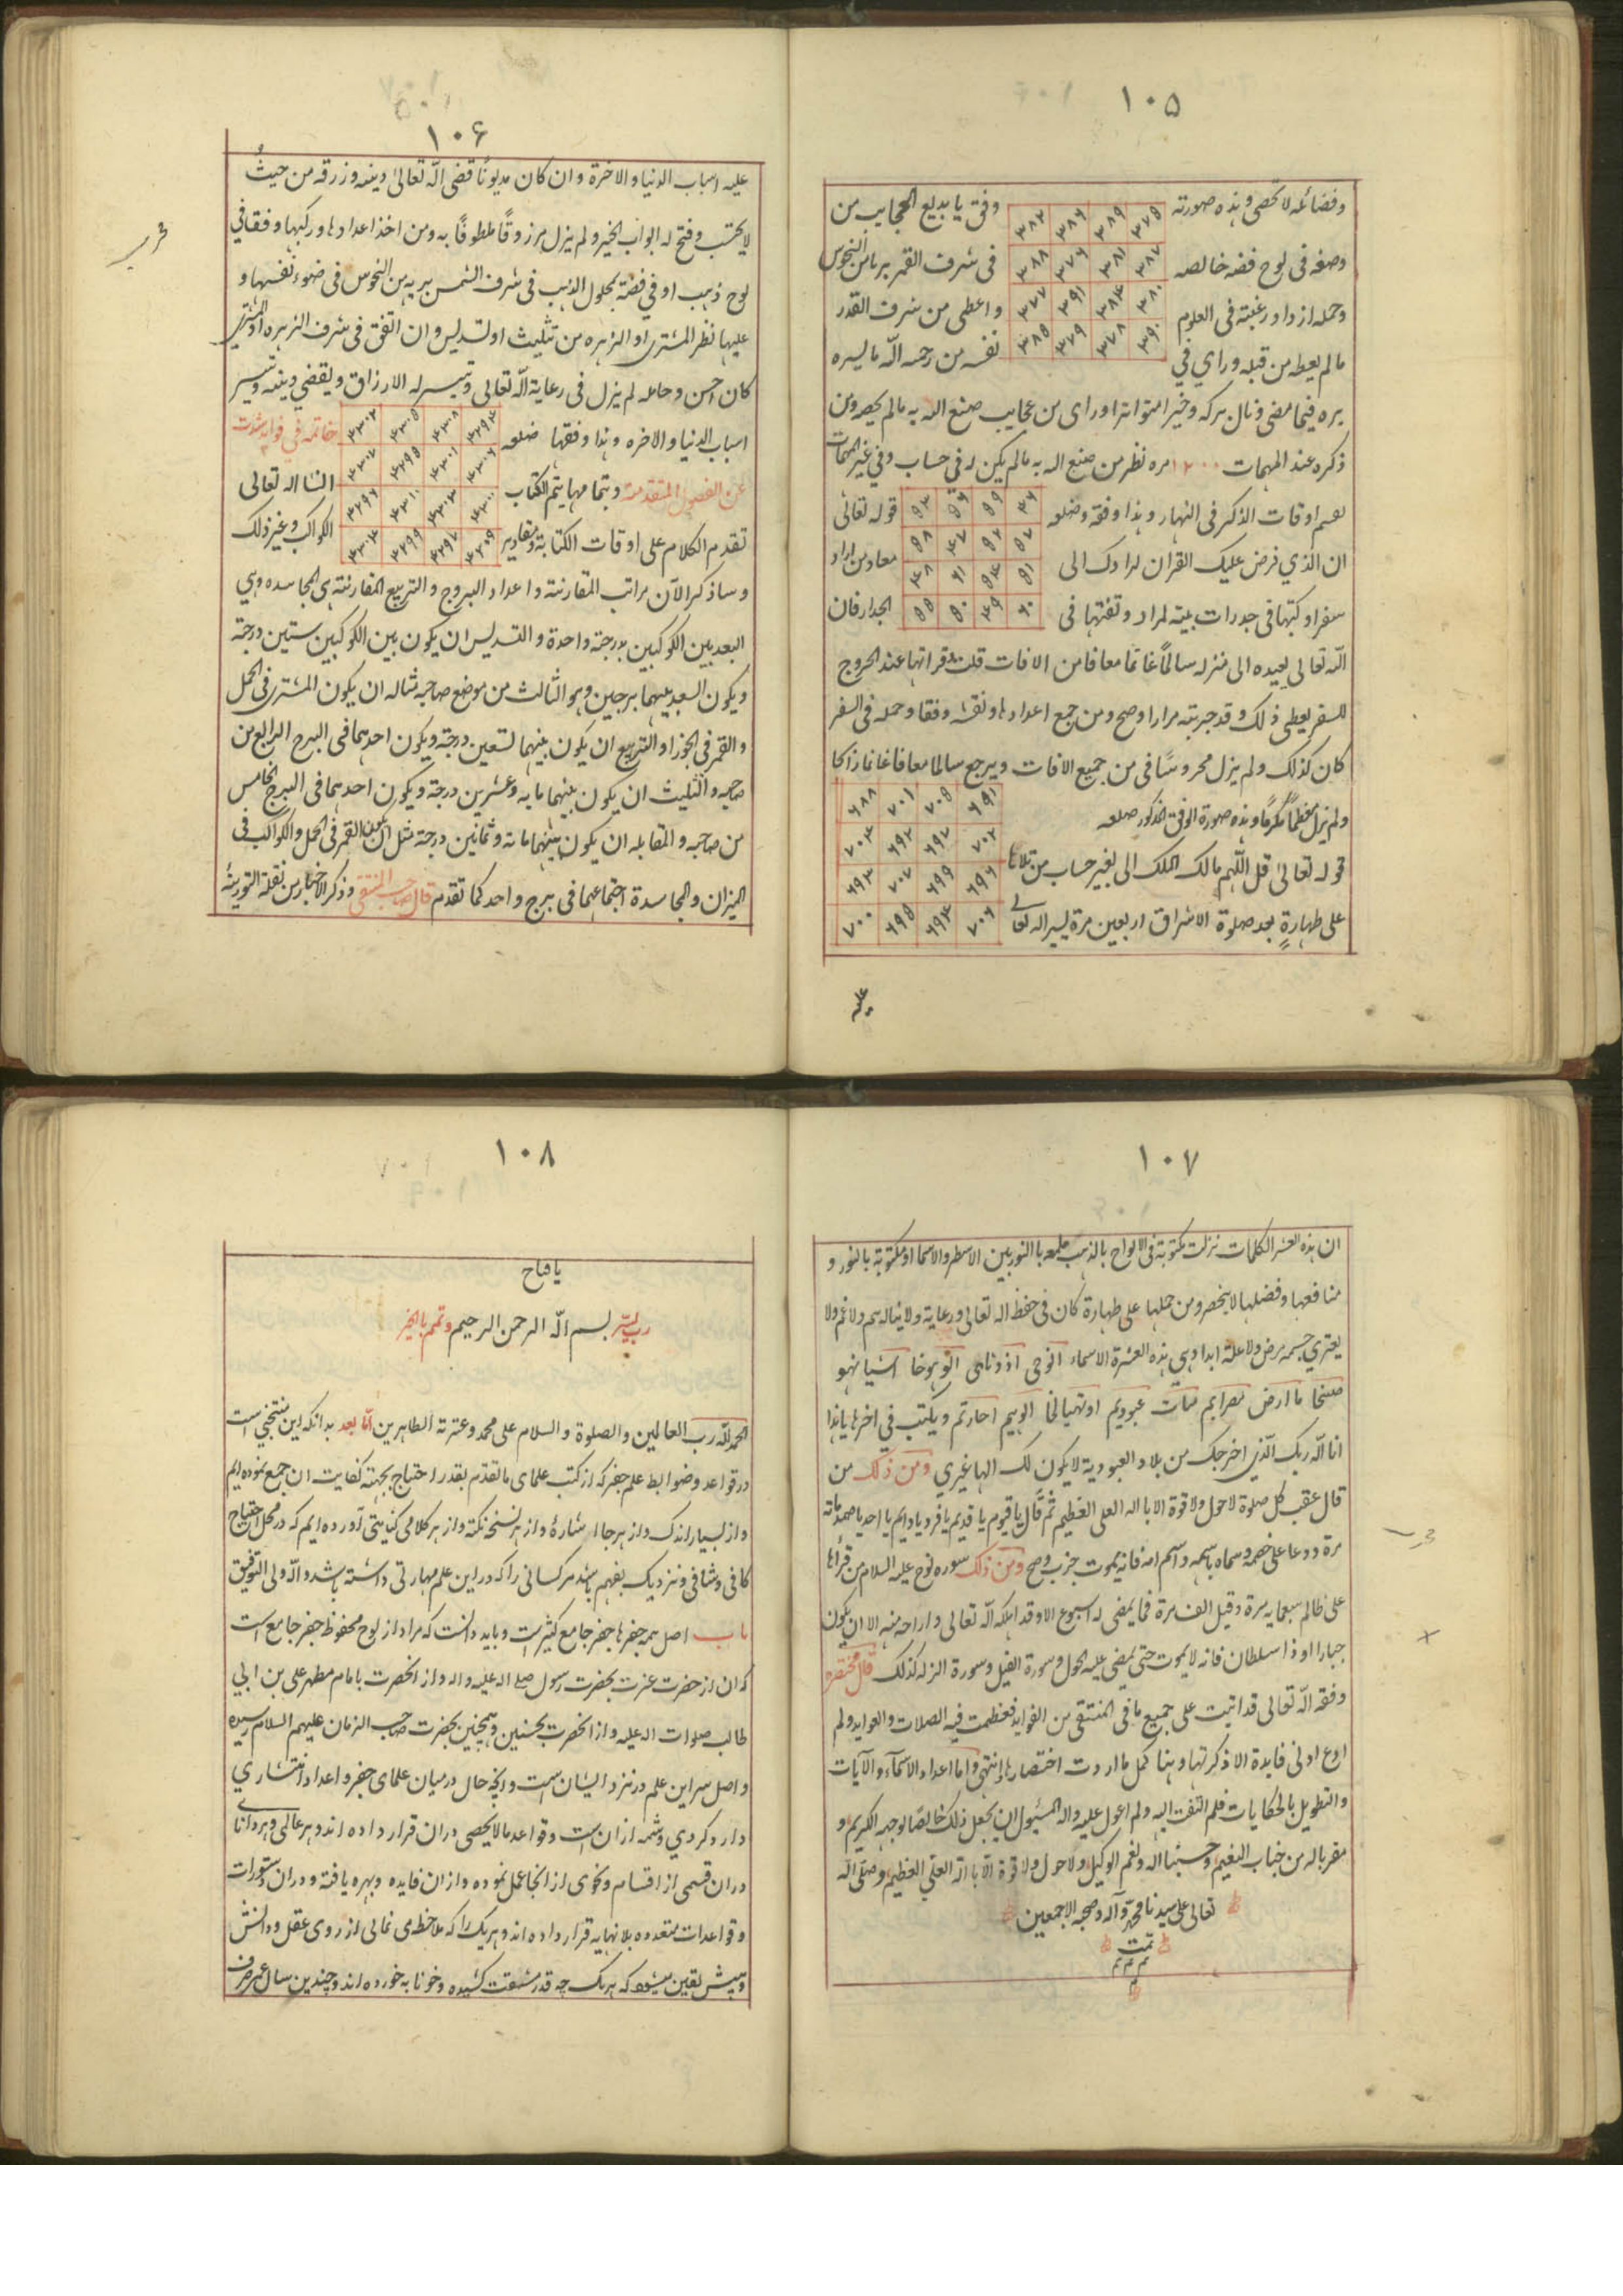 ١٠٥
وفضائله لا تحصى وهذه صورته
٣٧٥ ٣٨٩ ٣٨٦ ٣٨٢
وفق يا بديع العجايب من
وصفه فى لوح فضه خالصه
٣٨٧ ٣٨١ ٣٧٦ ٣٨٨
فى شرف القمر بريا من النحوس
وحمله ازداد رغبته فى العلوم
٣٨٠ ٣٨٤ ٣٩١ ٣٧٧
واعطى من شرف القدر
مالم يعطه من قبله وراي في
٣٩٠ ٣٧٨ ٣٧٩ ٣٨٥
نفسه من رحمه الله مالم يره
يره فيما مضى ونال بركه وخيرا متواترا وراى من عجايب صنع الله به مالم يحصر ومن
ذكره عند المهمات ١٢٠٠ مره نظر من صنع الله به مالم يكن له فى حساب وفي غير المهمات
يعم اوقات الذكر فى النهار وهذا وفقه وضلعه
٤٦ ٥٩ ٥٦ ٥٣
قوله تعالى
٥٧ ٥٢ ٤٧ ٥٨
ان الذي فرض عليك القران لرادك الى
معاد من اراد
٥١ ٥٤ ٦١ ٤٨
سفرا وكتبها فى جدرات بيته لمراد وتفتها فى
٦٠ ٤٩ ٥٠ ٥٥
الجدار فان
الله تعالى يعيده الى منزله سالمًا غانمًا معافا من الافات قلت وقراتها عند الخروج
للسفر يعطى ذلك وقد جربته مرارا وصح ومن جمع اعدادها ونقشه وفقا وحمله فى السفر
كان كذلك ولم يزل محروسًا فى من جميع الافات ويرجع سالما معافا غانما زاكا
٦٩١ ٧٠٥ ٧٠١ ٦٨٨
ولم يزل معظمًا مكرمًا وهذه صورة الوفق المذكور ضلعه
٧٠٢ ٦٩٧ ٦٩٢ ٧٠٤
قوله تعالى قل اللهم مالك الملك الى بغير حساب من تلاها
٦٩٦ ٦٩٩ ٧٠٧ ٦٩٣
على طهارةٍ بعد صلوة الاشراق اربعين مرة يسر الله تعالى
٧٠٦ ٦٩٤ ٦٩٥ ٧٠٠
عليه
١٠٦
عليه اسباب الدنيا والاخرة وان كان مديونًا قضى الله تعالى دينه وزرقه من حيث
لا يحتسب وفتح له ابواب الخير ولم يزل مرزوقًا ملطوفًا به ومن اخذ اعدادها وركبها وفقا في
لوح ذهب او في فضة بمحلول الذهب فى شرف الشمس بريه من النحوس فى ضوء نفسها و
عليها نظر المشترى او الزهره من تثليث او تسديس وان اتفق فى شرف الزهره او المشتري
كان احسن وحامله لم يزل فى رعاية الله تعالى وتيسر له الارزاق ويقضي دينه وتيسر
اسباب الدنيا والاخره وهذا وفقها ضلعه
٣٢٩٤ ٣٣٠٨ ٣٣٠٥ ٣٣٠٢
خاتمه في فوايد شذت
٣٣٠٦ ٣٣٠١ ٣٢٩٥ ٣٣٠٧
عن الفصول المتقدمة وبتمامها يتم الكتاب
انشا الله تعالى
٣٣٠٠ ٣٣٠٣ ٣٣١٠ ٣٢٩٦
تقدم الكلام على اوقات الكتابة ومقادير
٣٣٠٩ ٣٢٩٧ ٣٢٩٩ ٣٣٠٤
الكواكب وغير ذلك
وساذكر الآن مراتب المقارنة واعداد البروج والتربيع المقارنة هى المجاسده وهي
البعد بين الكوكبين بدرجة واحدة والتسديس ان يكون بين الكوكبين ستين درجة
ويكون البعد بينهما برجين وهو الثالث من موضع صاحبه مثاله ان يكون المشترى فى الحمل
والقمر فى الجوزا والتربيع ان يكون بينهما تسعين درجة ويكون احدهما فى البرج الرابع من
صاحبه والتثليث ان يكون بينهما مايه وعشرين درجة ويكون احدهما فى البرج الخامس
من صاحبه والمقابله ان يكون بينهما مائة وثمانين درجة مثل ان يكون القمر فى الحمل والكواكب فى
الميزان والمجاسدة اجتماعهما فى برج واحد كما تقدم قال صاحب المنتقى وذكر الاخبار من نقلة التورية
١٠٧
ان هذه العشر الكلمات نزلت مكتوبة فى الالواح بالذهب ملمعه بالنور بين الاسطر والاسما او مكتوبة بالنور و
منافعها وفضلها لا ينحصر ومن حملها على طهارة كان فى حفظ الله تعالى ورعاية ولا يناله هم ولا غم ولا
يعتري جسمه مرض ولا علة ابدا وهي هذه العشرة الاسماء
انا الله ربك الذي اخرجك من بلاد العبودية لا يكون لك الها غيري ومن ذلك من
قال عقب كل صلوة لا حول ولا قوة الا بالله العلى العظيم ثم قال يا قيوم يا قديم يا فرد يا دايم يا احد يا صمد مائة
مرة ودعا على خصمه وسماه باسمه واسم امه فانه يموت جرب وصح ومن ذلك سوره نوح عليه السلام من قرأها
على ظالم سبعمايه مرة وقيل الف مرة فما يمضى له اسبوع الا وقد اهلكه الله تعالى واراحه منه الا ان يكون
جبارا او ذا سلطان فانه لا يموت حتى يمضى عليه الحول وسورة الفيل وسورة الزلزله كذلك قال مختصره
وفقه الله تعالى قد اتيت على جميع ما فى المنتقى من الفوايد فعظمت فيه الصلات والعوايد ولم
ادع ادنى فايدة الا ذكرتها وهنا كمل ما اردت اختصارها انتهى واما اعداد الاسماء والآيات
والتطويل بالحكايات فلم التفت اليه ولم اعول عليه والله المسئول ان يجعل ذلك خالصًا لوجهه الكريم و
مقربا له من جناب النعيم وحسبنا الله ونعم الوكيل ولا حول ولا قوة الا بالله العلي العظيم وصلى الله
تعالى على سيدنا محمد وآله وصحبه الاجمعين
تمت
م م م
١٠٨
يا فتاح
رب يسر بسم الله الرحمن الرحيم وتمم بالخير
الحمد لله رب العالمين والصلوة والسلام على محمد وعترته الطاهرين اما بعد بدانكه اين منتخبي است
در قواعد وضوابط علم جفر كه از كتب علماى ما تقدم بقدر احتياج بجهته كفايت ان جمع نموده ايم
واز بسيار اندك واز هر جا اشارۀ واز هر نسخه نكته واز هر كلامى كنايتى آورده ايم كه در محل احتياج
كافى وشافى ونزديك بفهم باشد مر كسانى را كه در اين علم مهارتى داشته باشد والله ولى التوفيق
باب اصل همه جفرها جفر جامع كثير است وبايد دانست كه مراد از لوح محفوظ جفر جامع است
كه ان از حضرت عزت بحضرت رسول صلى الله عليه واله واز انحضرت بامام مطهر على بن ابي
طالب صلوات الله عليه واز انحضرت بحسنين وهمچنين بحضرت صاحب الزمان عليهم السلام رسيده
واصل سر اين علم در نزد ايشان است وانچه حال در ميان علماى جفر واعداد انتشارى
دارد گردي وشمه از ان است وقواعد ما لا يحصى دران قرار داده اند وهر عالمى وهر دانا
دران قسمى از اقسام ونحوى از انحا عمل نموده واز ان فايده وبهره يافته ودران دستورات
وقواعدات متعدده بلا نهايه قرار داده اند وهر يك را كه ملاحظه مى نمائى از روى عقل ودانش
وبينش يقين ميشود كه هر يك چه قدر مشقت كشيده وخونابه خورده اند وچندين سال عمر صرف